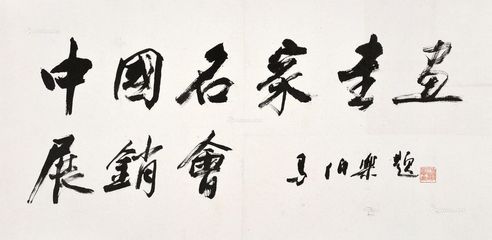 中國名家書畫
展銷會
馬伯樂題